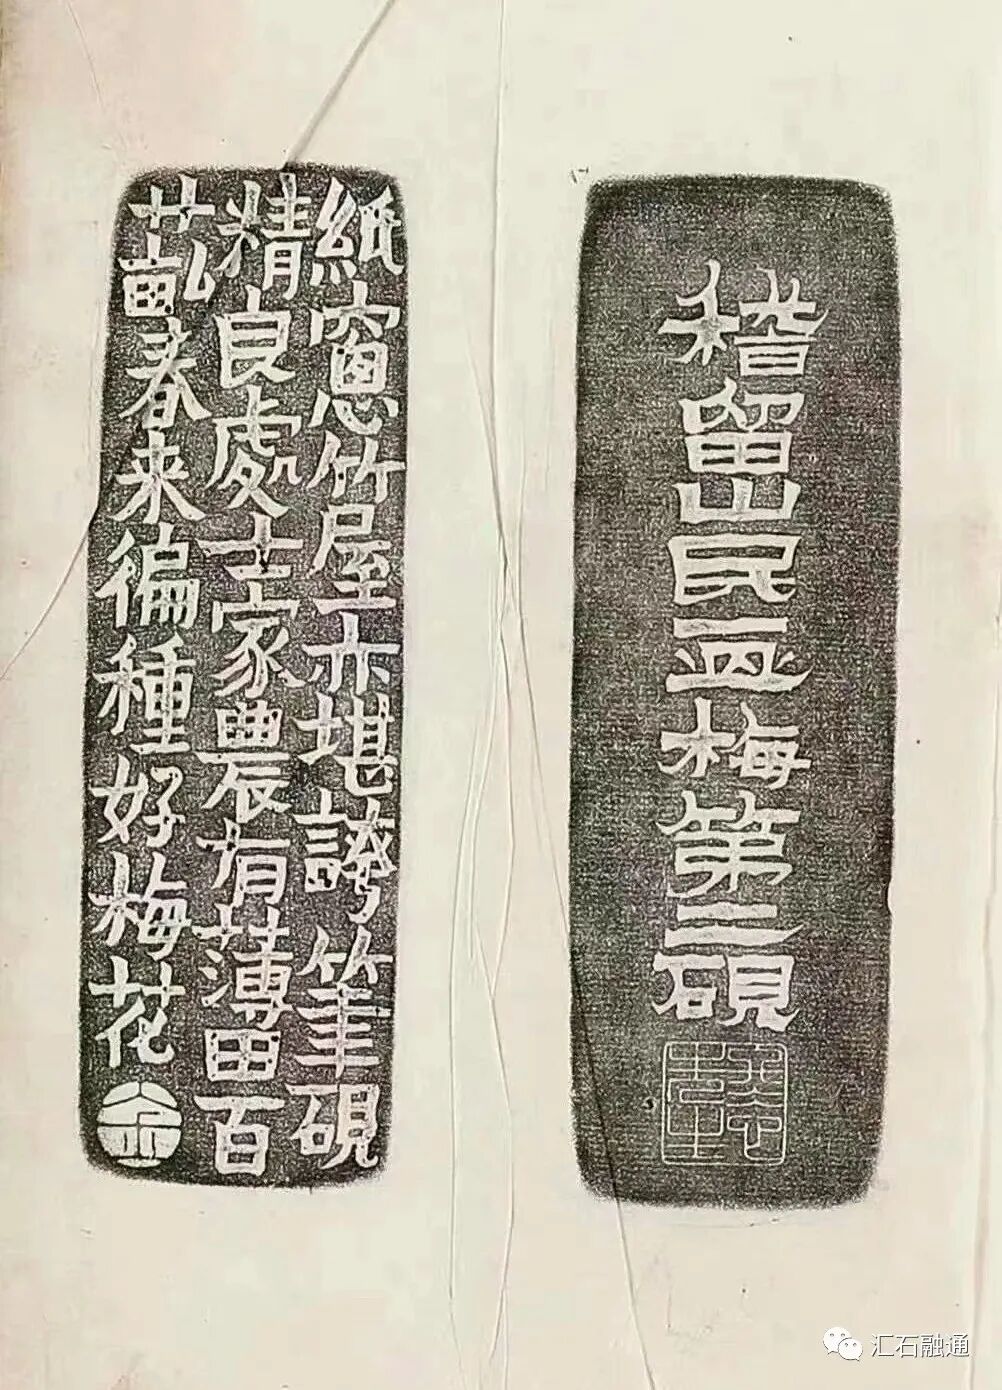 稽留山民画梅第二硯
冬心先生
紙窻竹屋亦堪誇筆硯
精良處士家農有薄田百
廿畝春来徧種好梅花
金
汇石融通